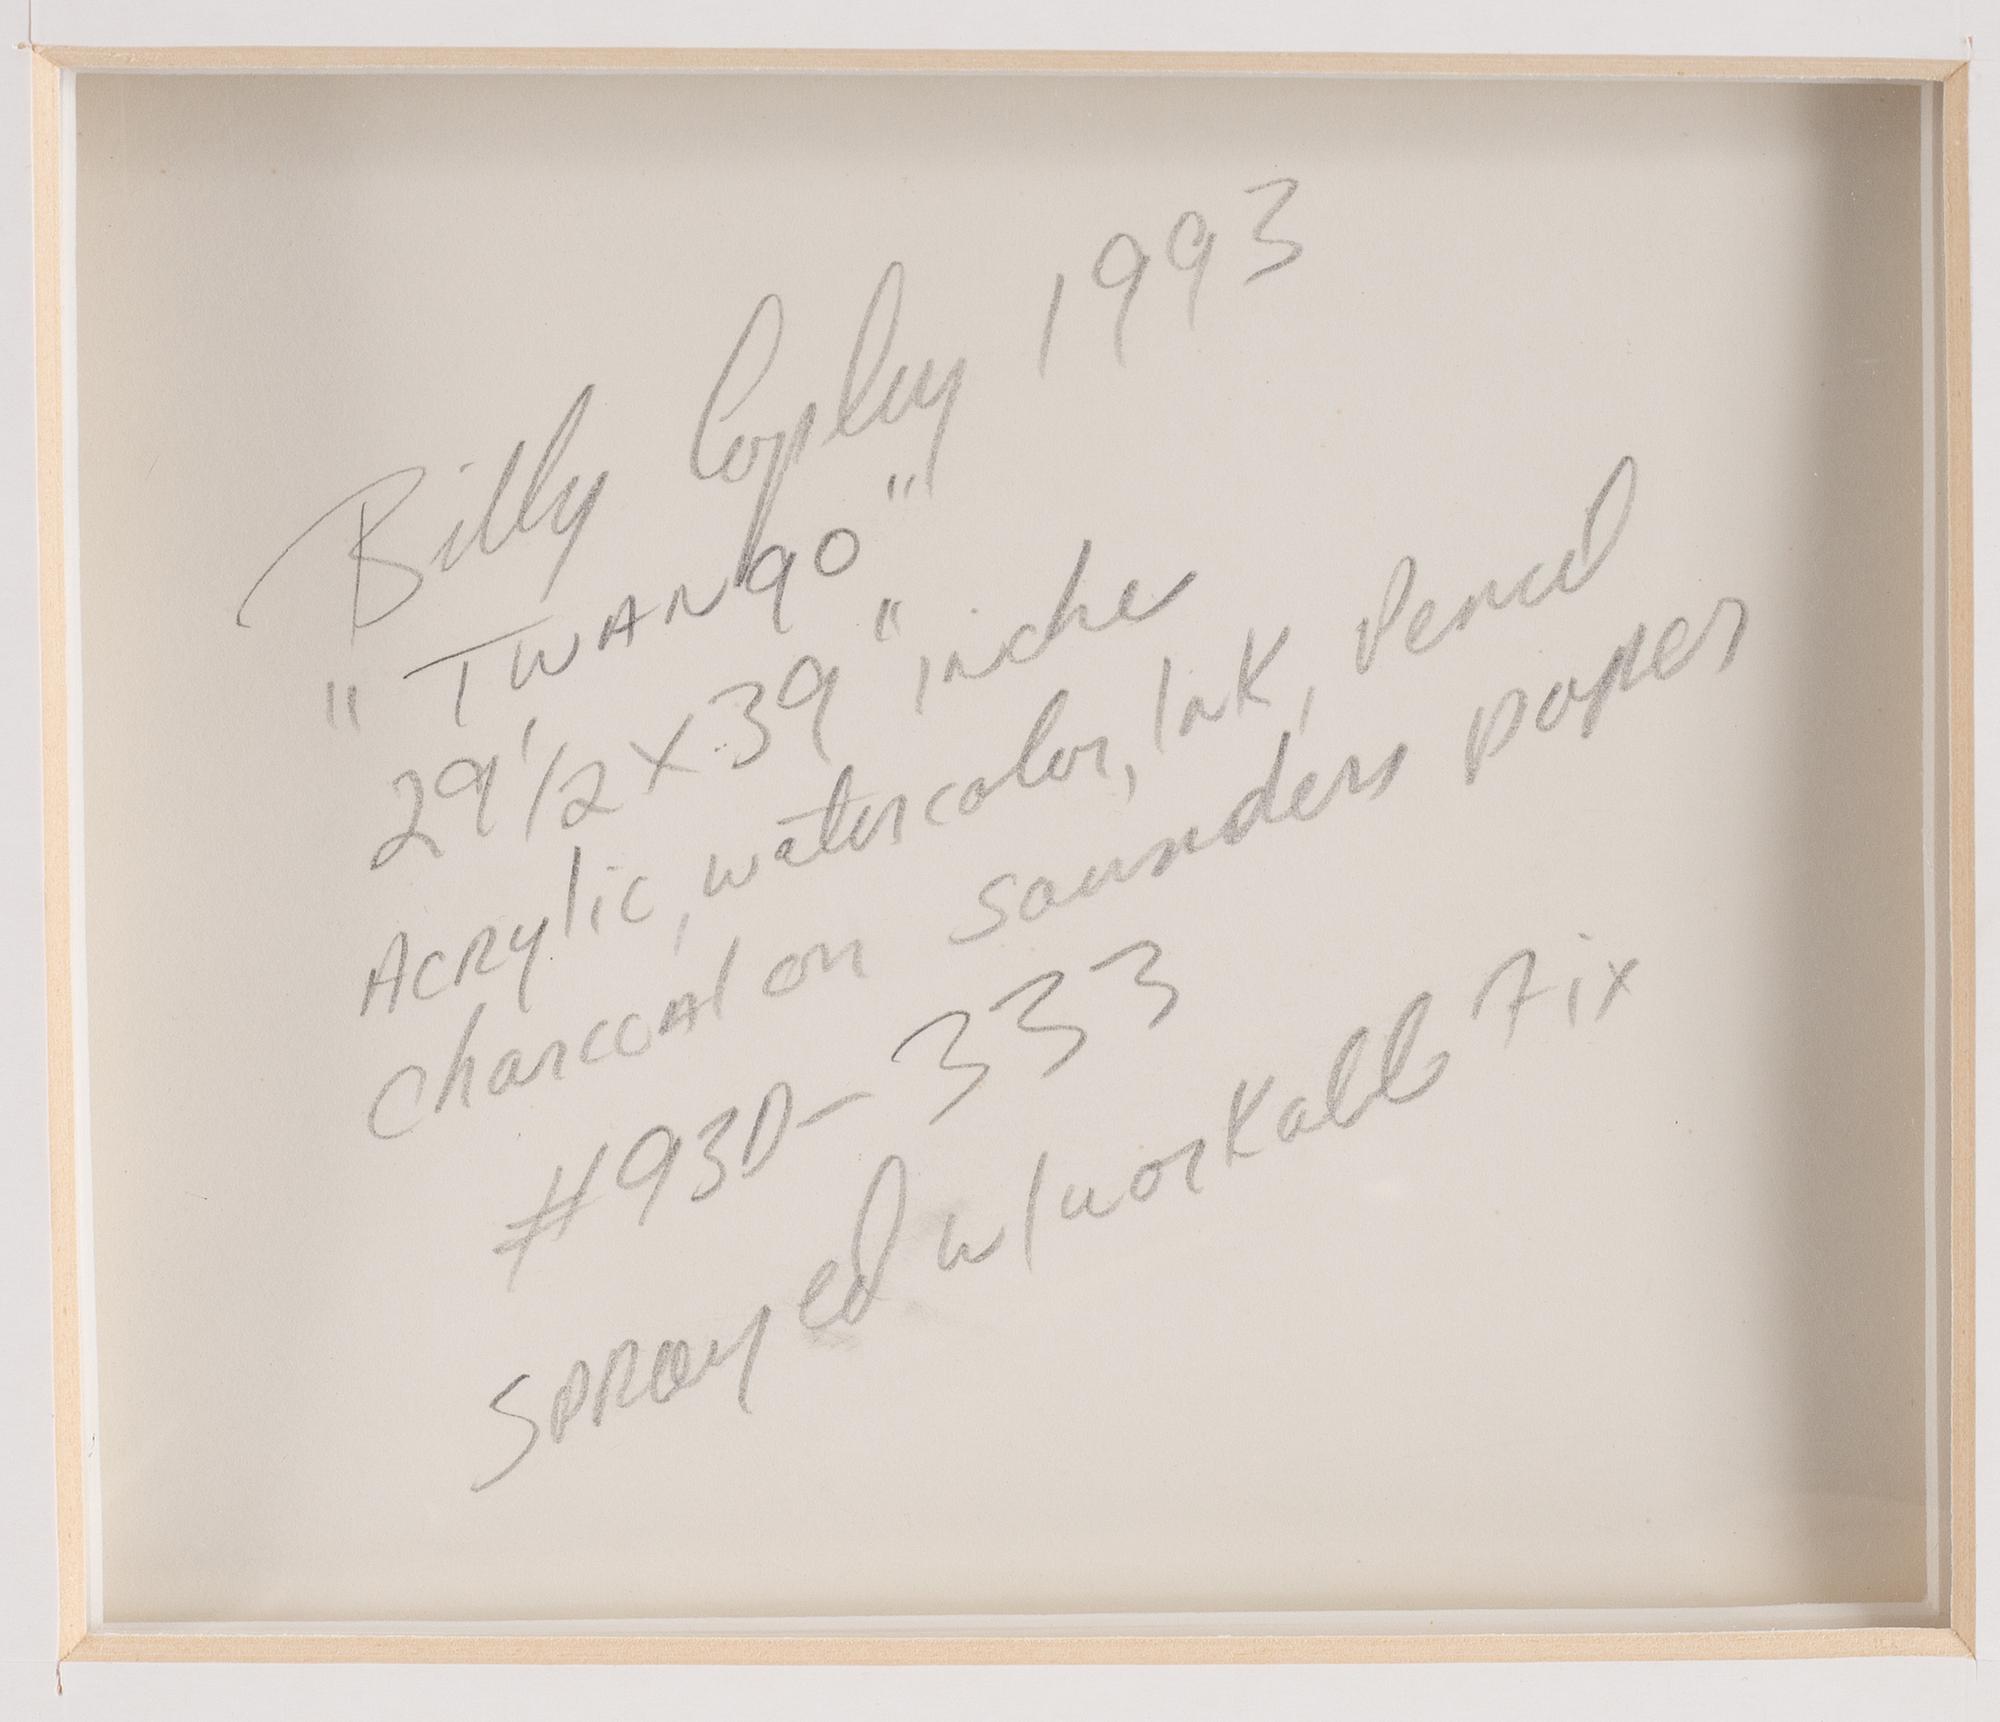 Billy Copley 1993
"TWANgo"
29 1/2 x 39" inches
Acrylic, watercolor, Ink, Pencil
charcoal on Saunders paper
#93D-333
SPRayed w/workable Fix